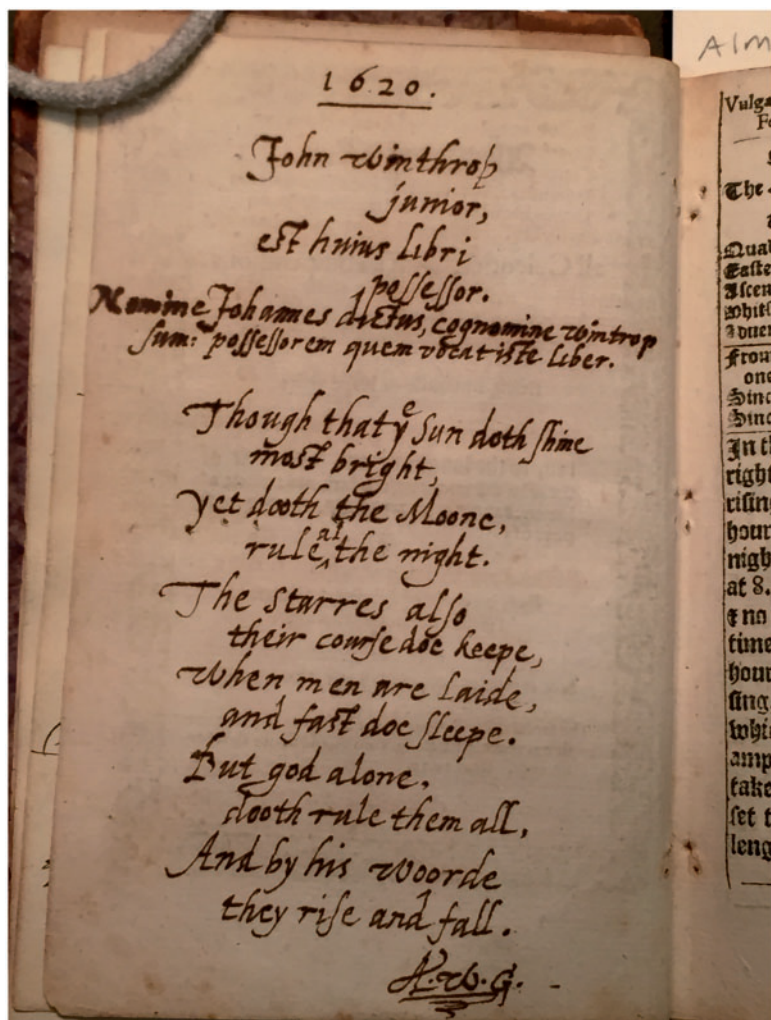 1620.
John Winthrop
junior,
est huius libri
possessor.
Nomine Johannes dictus, cognomine Wintrop
sum: possessorem quem vocat iste liber.
Though that yᵉ Sun doth shine
most bright,
yet dooth the Moone,
rule al the night.
The starres also
their course doe keepe,
When men are laide,
and fast doe sleepe.
But god alone,
dooth rule them all,
And by his woorde
they rise and fall.
A.W.G.
Alm
Vulga
The
Qual
Easte
Ascen
Whits
Aduen
From
one
Sinc
Sinc
In th
right
rising
hour
nigh
at 8.
& no
time
hour
sing
whi
amp
take
set t
leng